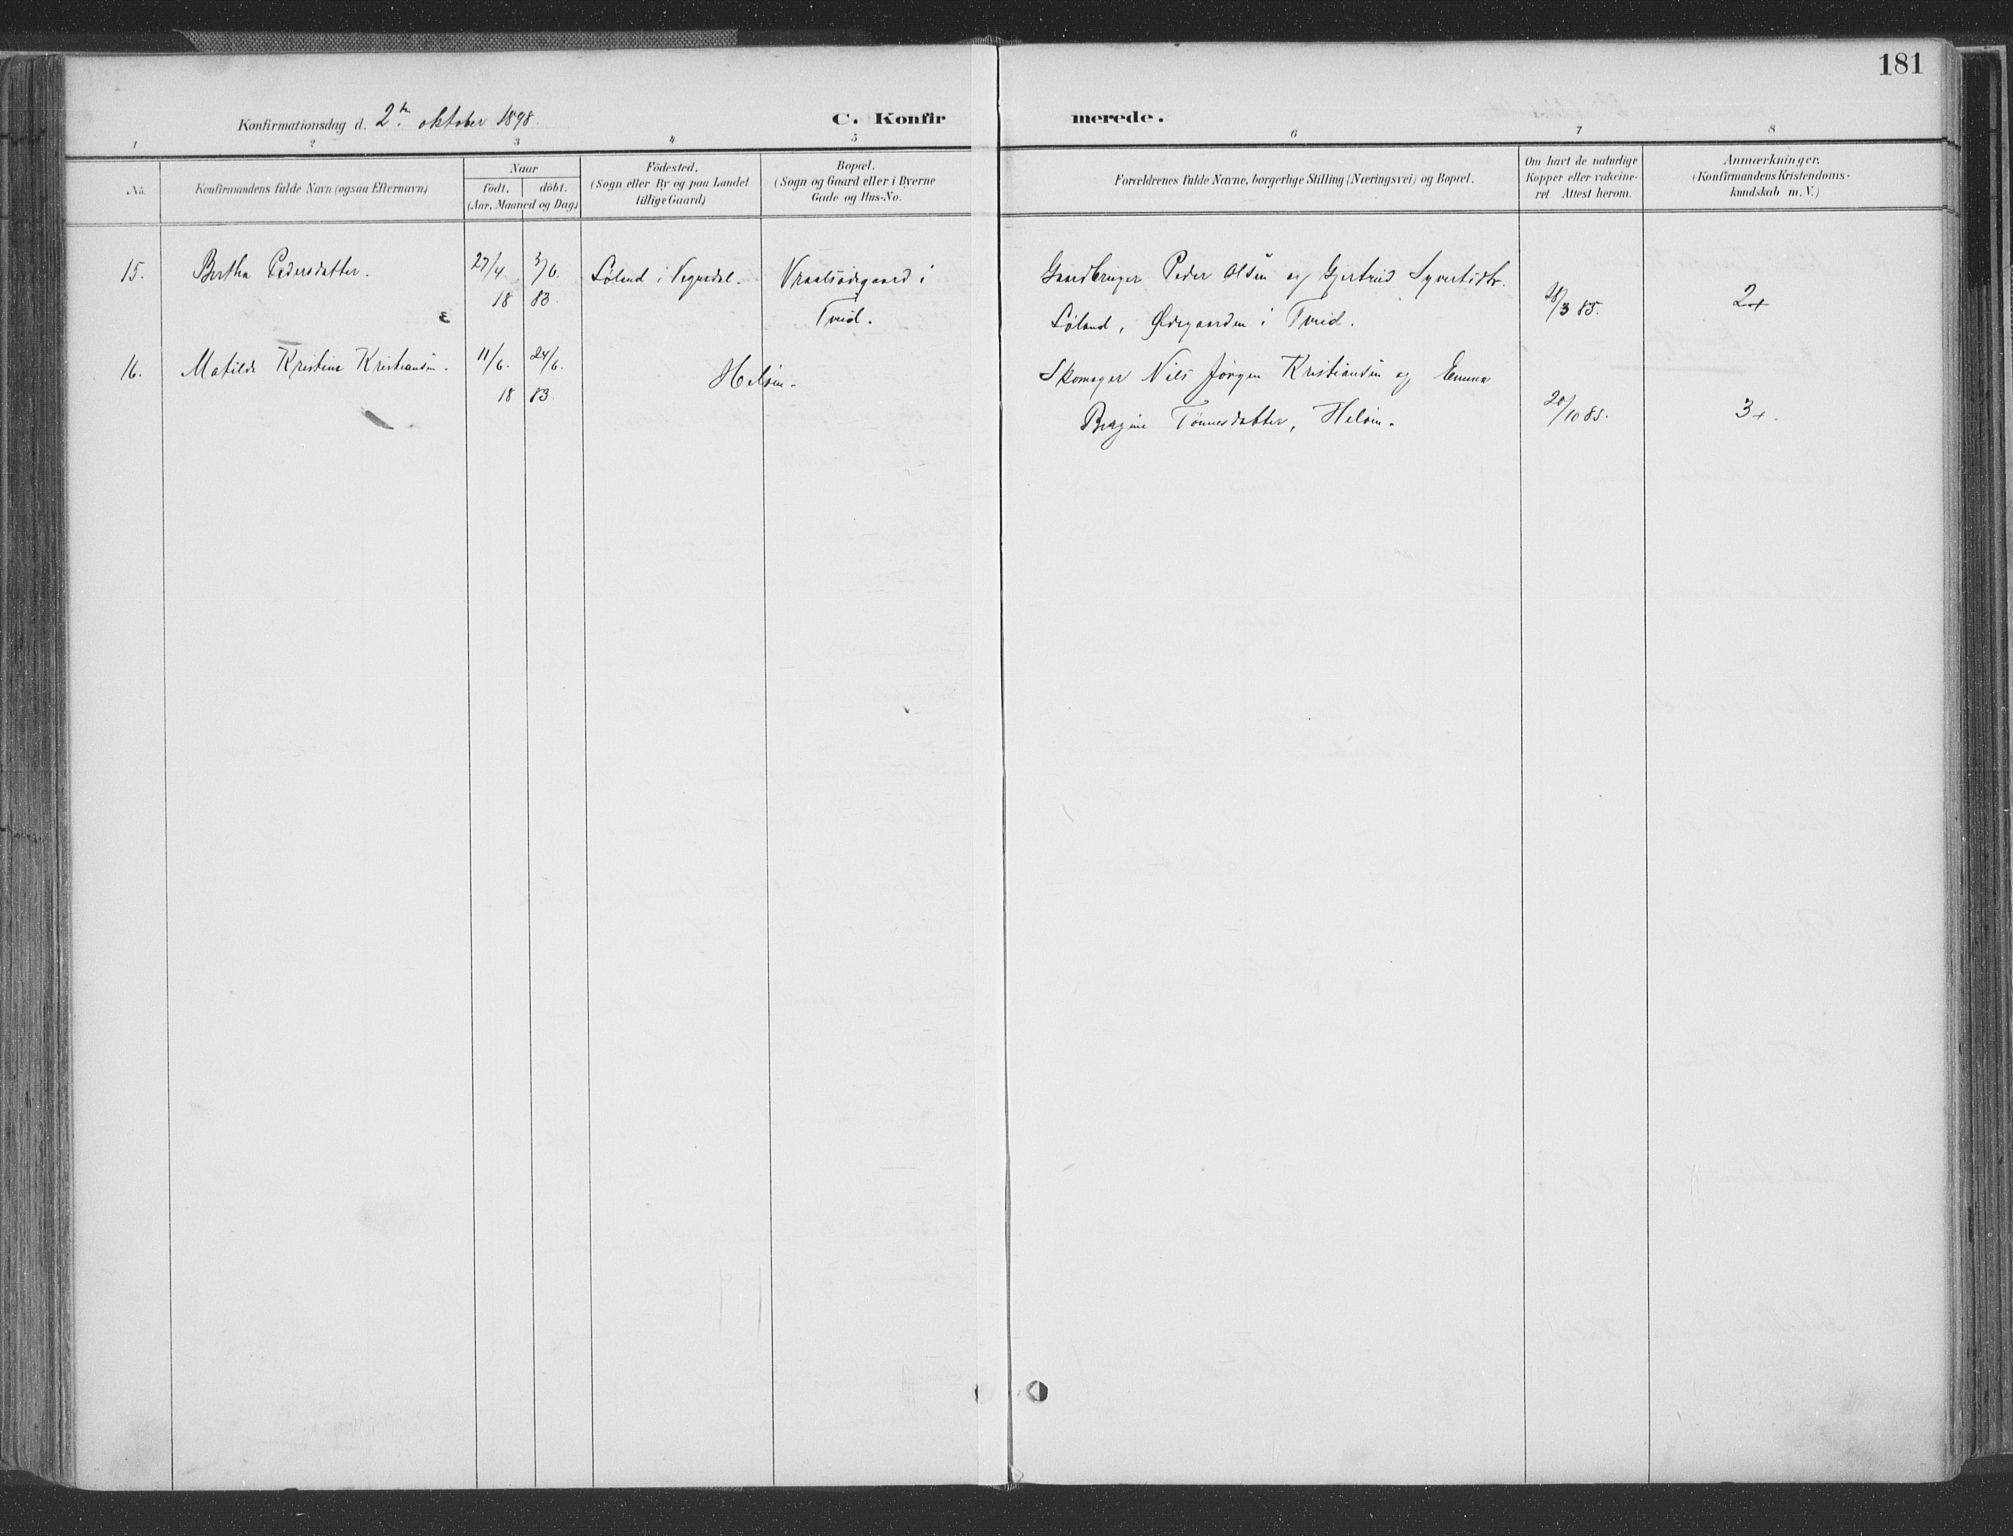 181
Konfirmationsdag d. 2den oktober 1898.
C. Konfirmerede.
1 2 3 4 5 6 7 8
No.
Konfirmandens fulde Navn (ogsaa Efternavn)
Naar
födt. döbt.
(Aar, Maaned og Dag)
Födested.
(Sogn eller By og paa Landet
tillige Gaard)
Bopæl.
(Sogn og Gaard eller i Byerne
Gade og Hus-No.
Forældrenes fulde Navne, borgerlige Stilling (Næringsvei) og Bopæl.
Om havt de naturlige
Kopper eller vakcine-
ret Attest herom.
Anmærkninger.
(Konfirmandens Kristendoms-
kundskab m. V.)
15. Bertha Pedersdatter. 27/4 3/6. Løland i Vegusdal. Vraalsødegaard i
18 83.
Tveid.
Gaardbruger Peder Olsen og Gjertrud Syvertsdtr.
Løland, Ødegaarden i Tveid. 28/3 85. 2+
16. Matilde Kristine Kristiansen. 11/6. 24/6.
18 83.
Helsin.
Skomager Nils Jørgen Kristiansen og Emma
Bergine Tønnesdatter, Helsin. 20/10 85. 3+.